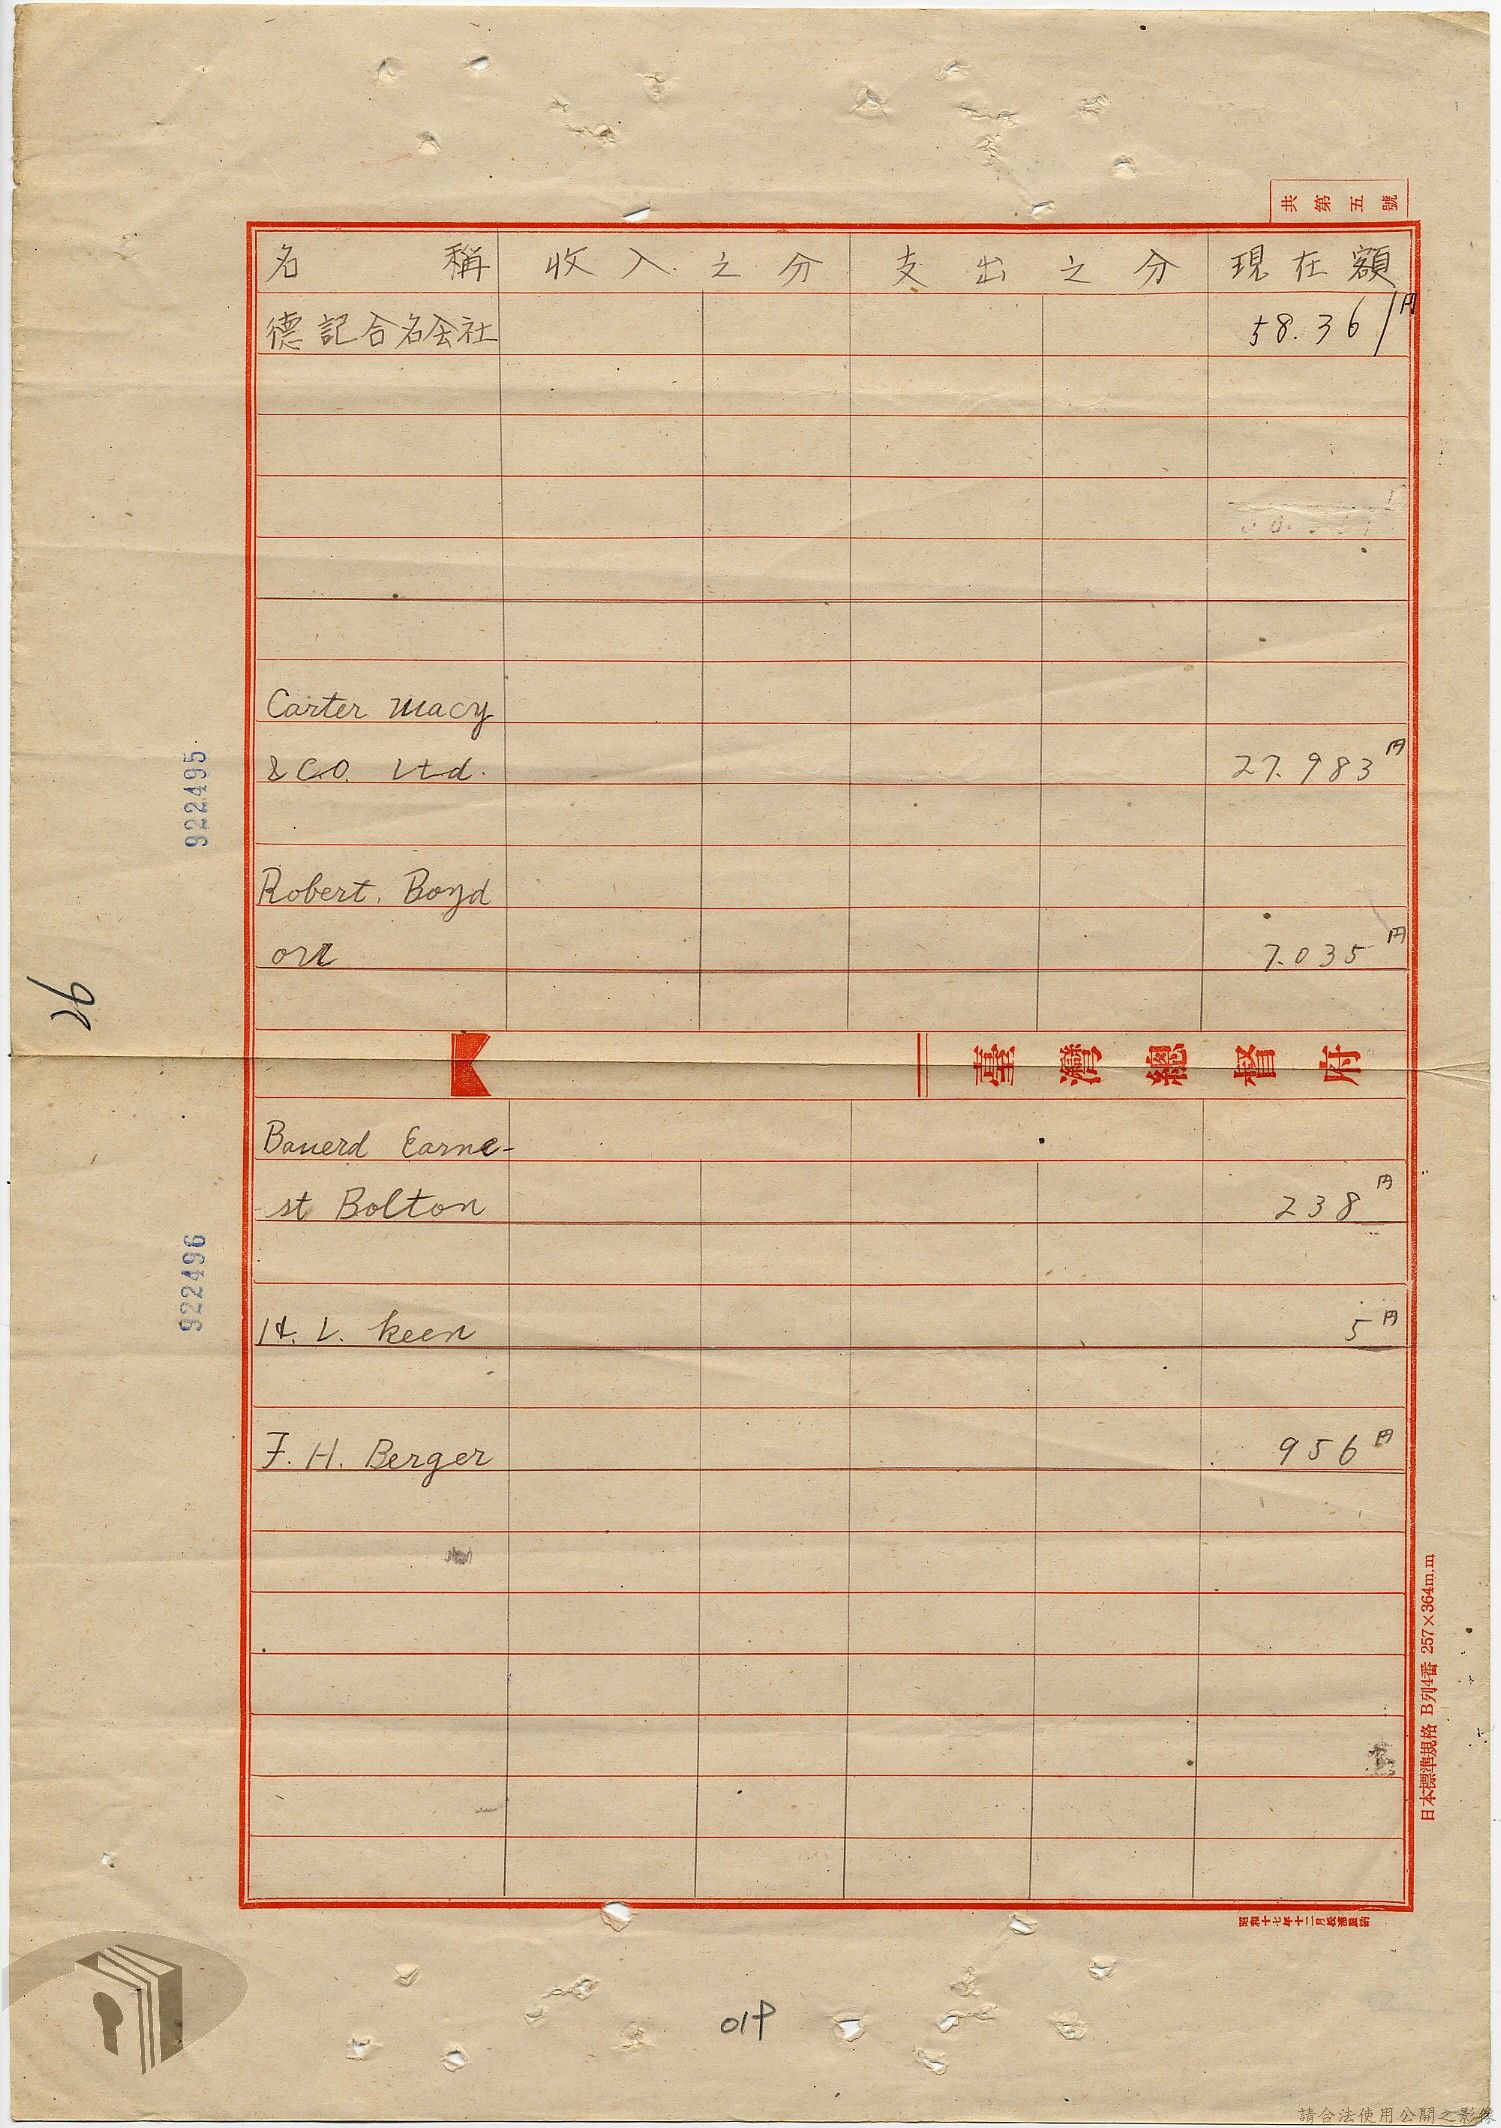 共第五號
名稱 收入之分 支出之分 現在額
德記合名会社 58.361円
Carter Macy
& CO. Ltd. 27.983円
922495
Robert. Boyd
orr 7.035円
臺灣總督府
Bauerd Earne-
st Bolton 238円
922496
H. L. Keen 5円
F. H. Berger 956円
日本標準規格 B列4番 257×364m.m
請合法使用公開之影像